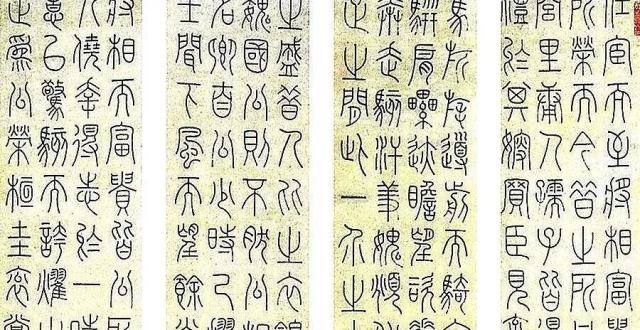 仕宦而至將相富
所榮而今昔之所
閭里庸人孺子皆
禮於其嫂買臣見棄
馬旂旄導前而騎
駢肩纍迹瞻望咨嗟
奔走駭汗羞愧俯
足之間此一介之士
之盛昔人比之衣錦
魏國公則不然公相
名卿自公少時已擢
士聞下風而望餘
將相而富貴皆公所
人僥幸得志於一時
意以驚駭而誇耀之
足為公榮桓圭袞裳